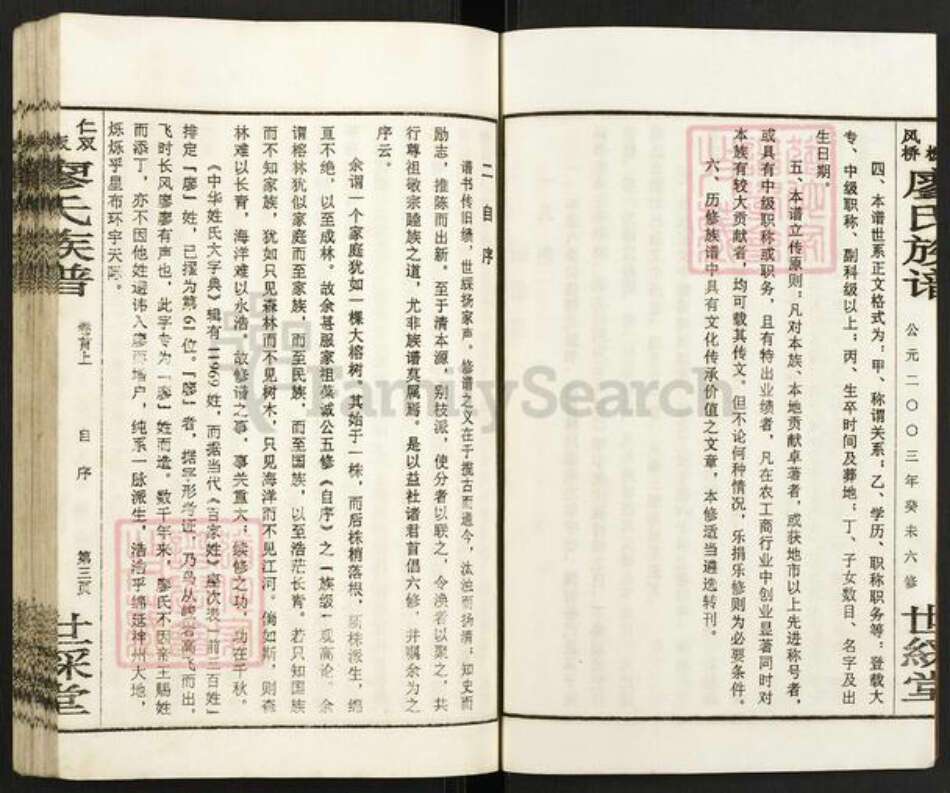 风桥
廖氏族谱
公元二〇〇三年癸未六修
世綵堂
四、本谱世系正文格式为：甲、称谓关系；乙、学历、职称职务等：登载大
专、中级职称、副科级以上；丙、生卒时间及葬地；丁、子女数目、名字及出
生日期。
五、本谱立传原则；凡对本族、本地贡献卓著者，或获地市以上先进称号者，
或具有中级职称或职务，且有特出业绩者，凡在农工商行业中创业显著同时对
本族有较大贡献者，均可载其传文。但不论何种情况，乐捐乐修则为必要条件。
六、历修族谱中具有文化传承价值之文章，本修适当遴选转刊。
二 自 序
谱书传旧绩，世綵扬家声。修谱之义在于揽古而通今，汰浊而扬清；知史而
励志，推陈而出新。至于清本源，别枝派，使分者以联之，令涣者以聚之，共
行尊祖敬宗睦族之道，尤非族谱莫属焉。是以益社诸君首倡六修，并嘱余为之
序云。
余谓一个家庭犹如一棵大榕树，其始于一株，而后株梢落根，派生，绵
亘不绝，以至成林。故余甚服家祖诚公五修《自序》之「族级」观高论。余
谓榕林犹似家庭而至家族，而至民族，而至国族，以至浩茫长青。若只知国族
而不知家族，犹如只见森林而不见树木，只见海洋而不见江河。倘如斯，则森
林难以长青，海洋难以永浩，故修谱之事，事关重大；续修之功，功在千秋。
《中华姓氏大字典》辑有11969姓，而据当代《百家姓》座次表「前三百姓」
排定「廖」姓，已擢为第61位。「廖」者，据字形考证，乃鸟从岩高飞而出，
飞时长风廖廖有声也，此字专为「廖」姓而造。数千年来，廖氏不因帝王赐姓
而添丁，亦不因他姓避讳入廖而增户，纯系一脉派生，浩浩乎绵延神州大地，
烁烁乎星布环宇天际。
仁双
廖氏族谱
卷首上
自序
第三页
世綵堂
FamilySearch